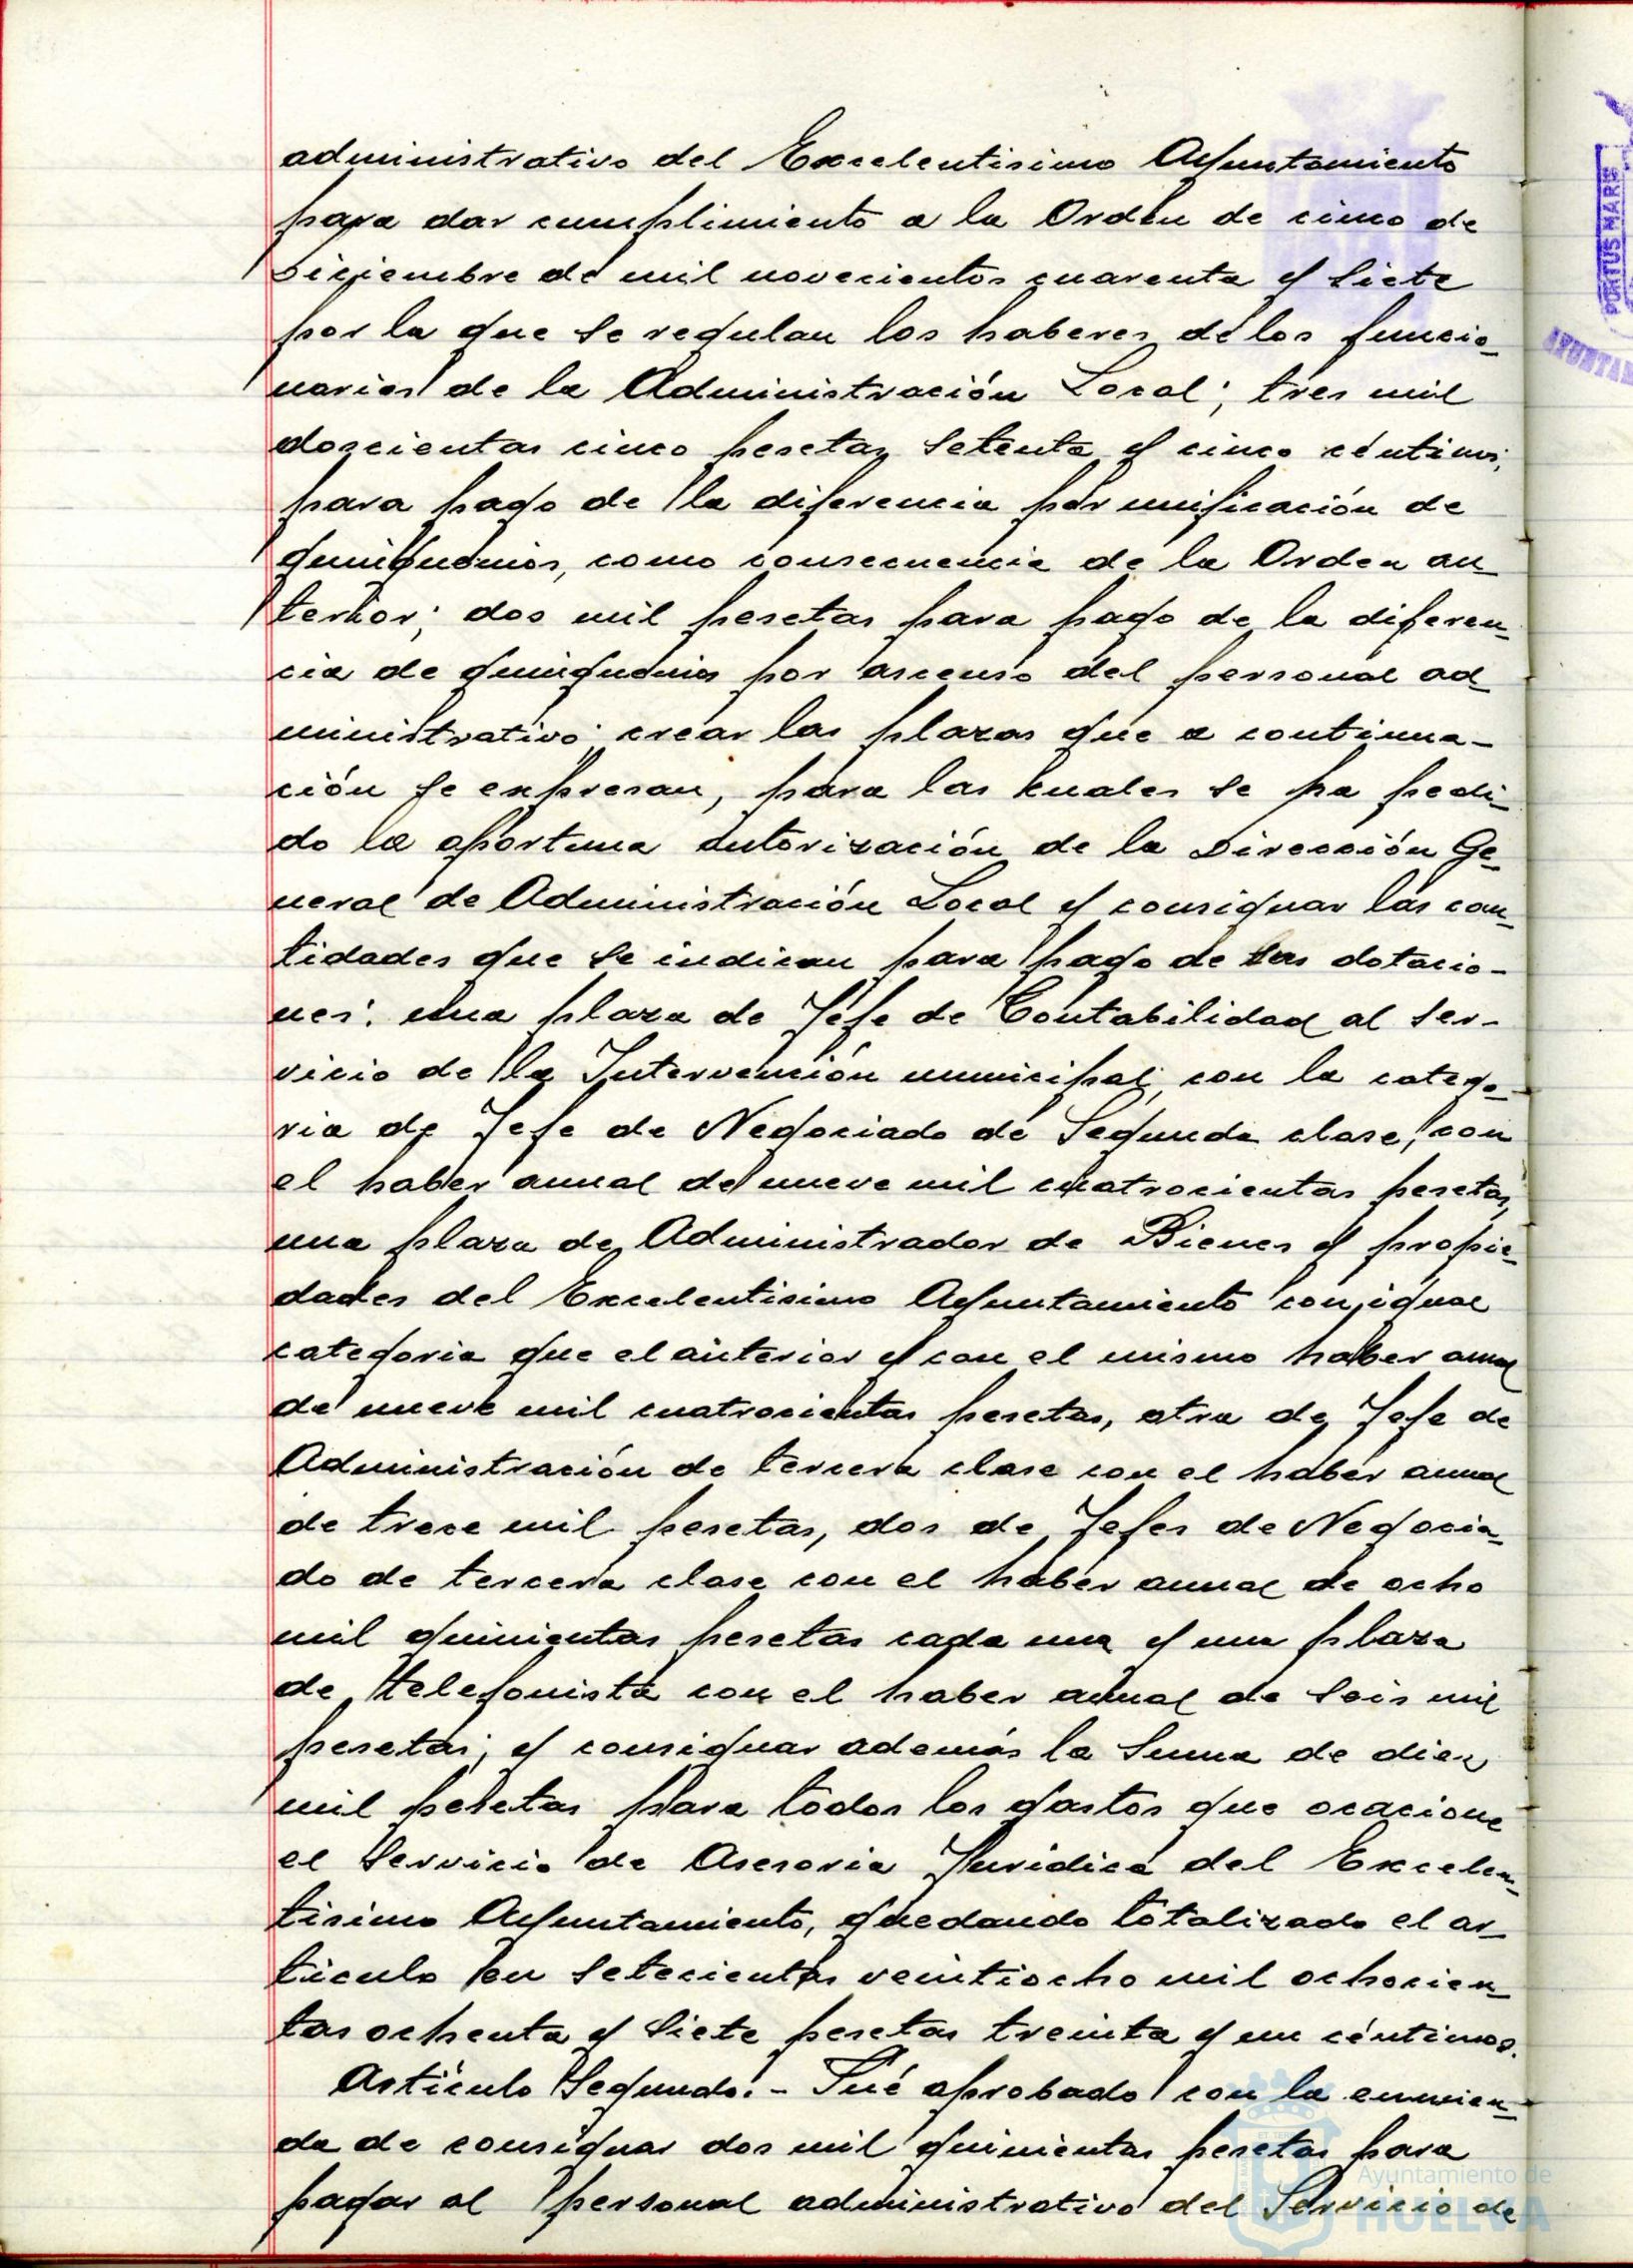 administrativo del Excelentisimo Ayuntamiento
para dar cumplimiento a la Orden de cinco de
Diciembre de mil novecientos cuarenta y siete
por la que se regulan los haberes de los funcio-
narios de la Administración Local; tres mil
doscientas cinco pesetas setenta y cinco céntimos,
para pago de la diferencia por unificación de
quinquenios, como consecuencia de la Orden an-
terior; dos mil pesetas para pago de la diferen-
cia de quinquenios por ascenso del personal ad-
ministrativo; crear las plazas que a continua-
ción se expresan, para las cuales se ha pedi-
do la oportuna autorización de la Dirección Ge-
neral de Administración Local y consignar las can-
tidades que se indican para pago de sus dotacio-
nes: una plaza de Jefe de Contabilidad al ser-
vicio de la Intervención municipal, con la catego-
ria de Jefe de Negociado de Segunda clase, con
el haber anual de nueve mil cuatrocientas pesetas,
una plaza de Administrador de Bienes y propie-
dades del Excelentisimo Ayuntamiento con igual
categoria que el anterior y con el mismo haber anual
de nueve mil cuatrocientas pesetas, otra de Jefe de
Administración de tercera clase con el haber anual
de trece mil pesetas, dos de Jefes de Negocia-
do de tercera clase con el haber anual de ocho
mil quinientas pesetas cada una y una plaza
de telefonista con el haber anual de seis mil
pesetas; y consignar además la suma de diez
mil pesetas para todos los gastos que ocacione
el servicio de Asesoria Juridica del Excelen-
tisimo Ayuntamiento, quedando totalizado el ar-
ticulo en setecientas veintiocho mil ochocien-
tas ochenta y siete pesetas treinta y un céntimos.
Artículo Segundo:- Fué aprobado con la enmien-
da de consignar dos mil quinientas pesetas para
pagar al personal administrativo del Servicio de
PORTUS MARIS
AYUNTAM
Ayuntamiento de
HUELVA